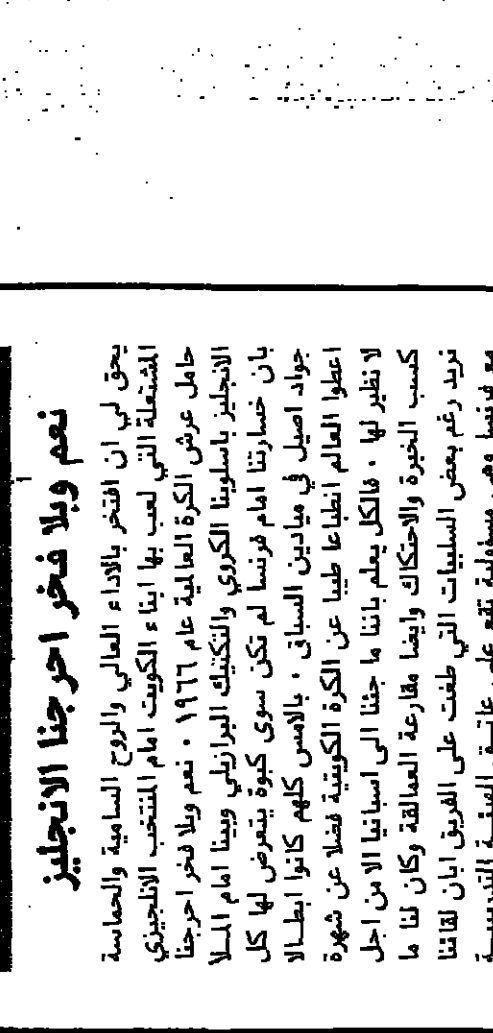 نعم وبلا فخر احرجنا الانجليز
يحق لي ان افتخر بالاداء العالي والروح السامية والحماسة
المشتعلة التي لعب بها ابناء الكويت امام المنتخب الانجليزي
حامل عرش الكرة العالمية عام ١٩٦٦ . نعم وبلا فخر احرجنا
الانجليز باسلوبنا الكروي والتكنيك البرازيلي وبينا امام الملأ
بان خسارتنا امام فرنسا لم تكن سوى كبوة يتعرض لها كل
جواد اصيل في ميادين السباق . بالامس كلهم كانوا ابطالا
اعطوا العالم انطباعا طيبا عن الكرة الكويتية فضلا عن شهرة
لا نظير لها . فالكل يعلم باننا ما جئنا الى اسبانيا الا من اجل
كسب الخبرة والاحتكاك وايضا مقارعة العمالقة وكان لنا ما
نريد رغم بعض السلبيات التي طغت على الفريق ابان لقائنا
مع فرنسا وهي مسؤولية تقع على عاتق